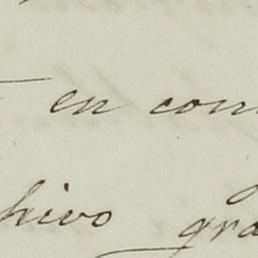 en con
hivo gra